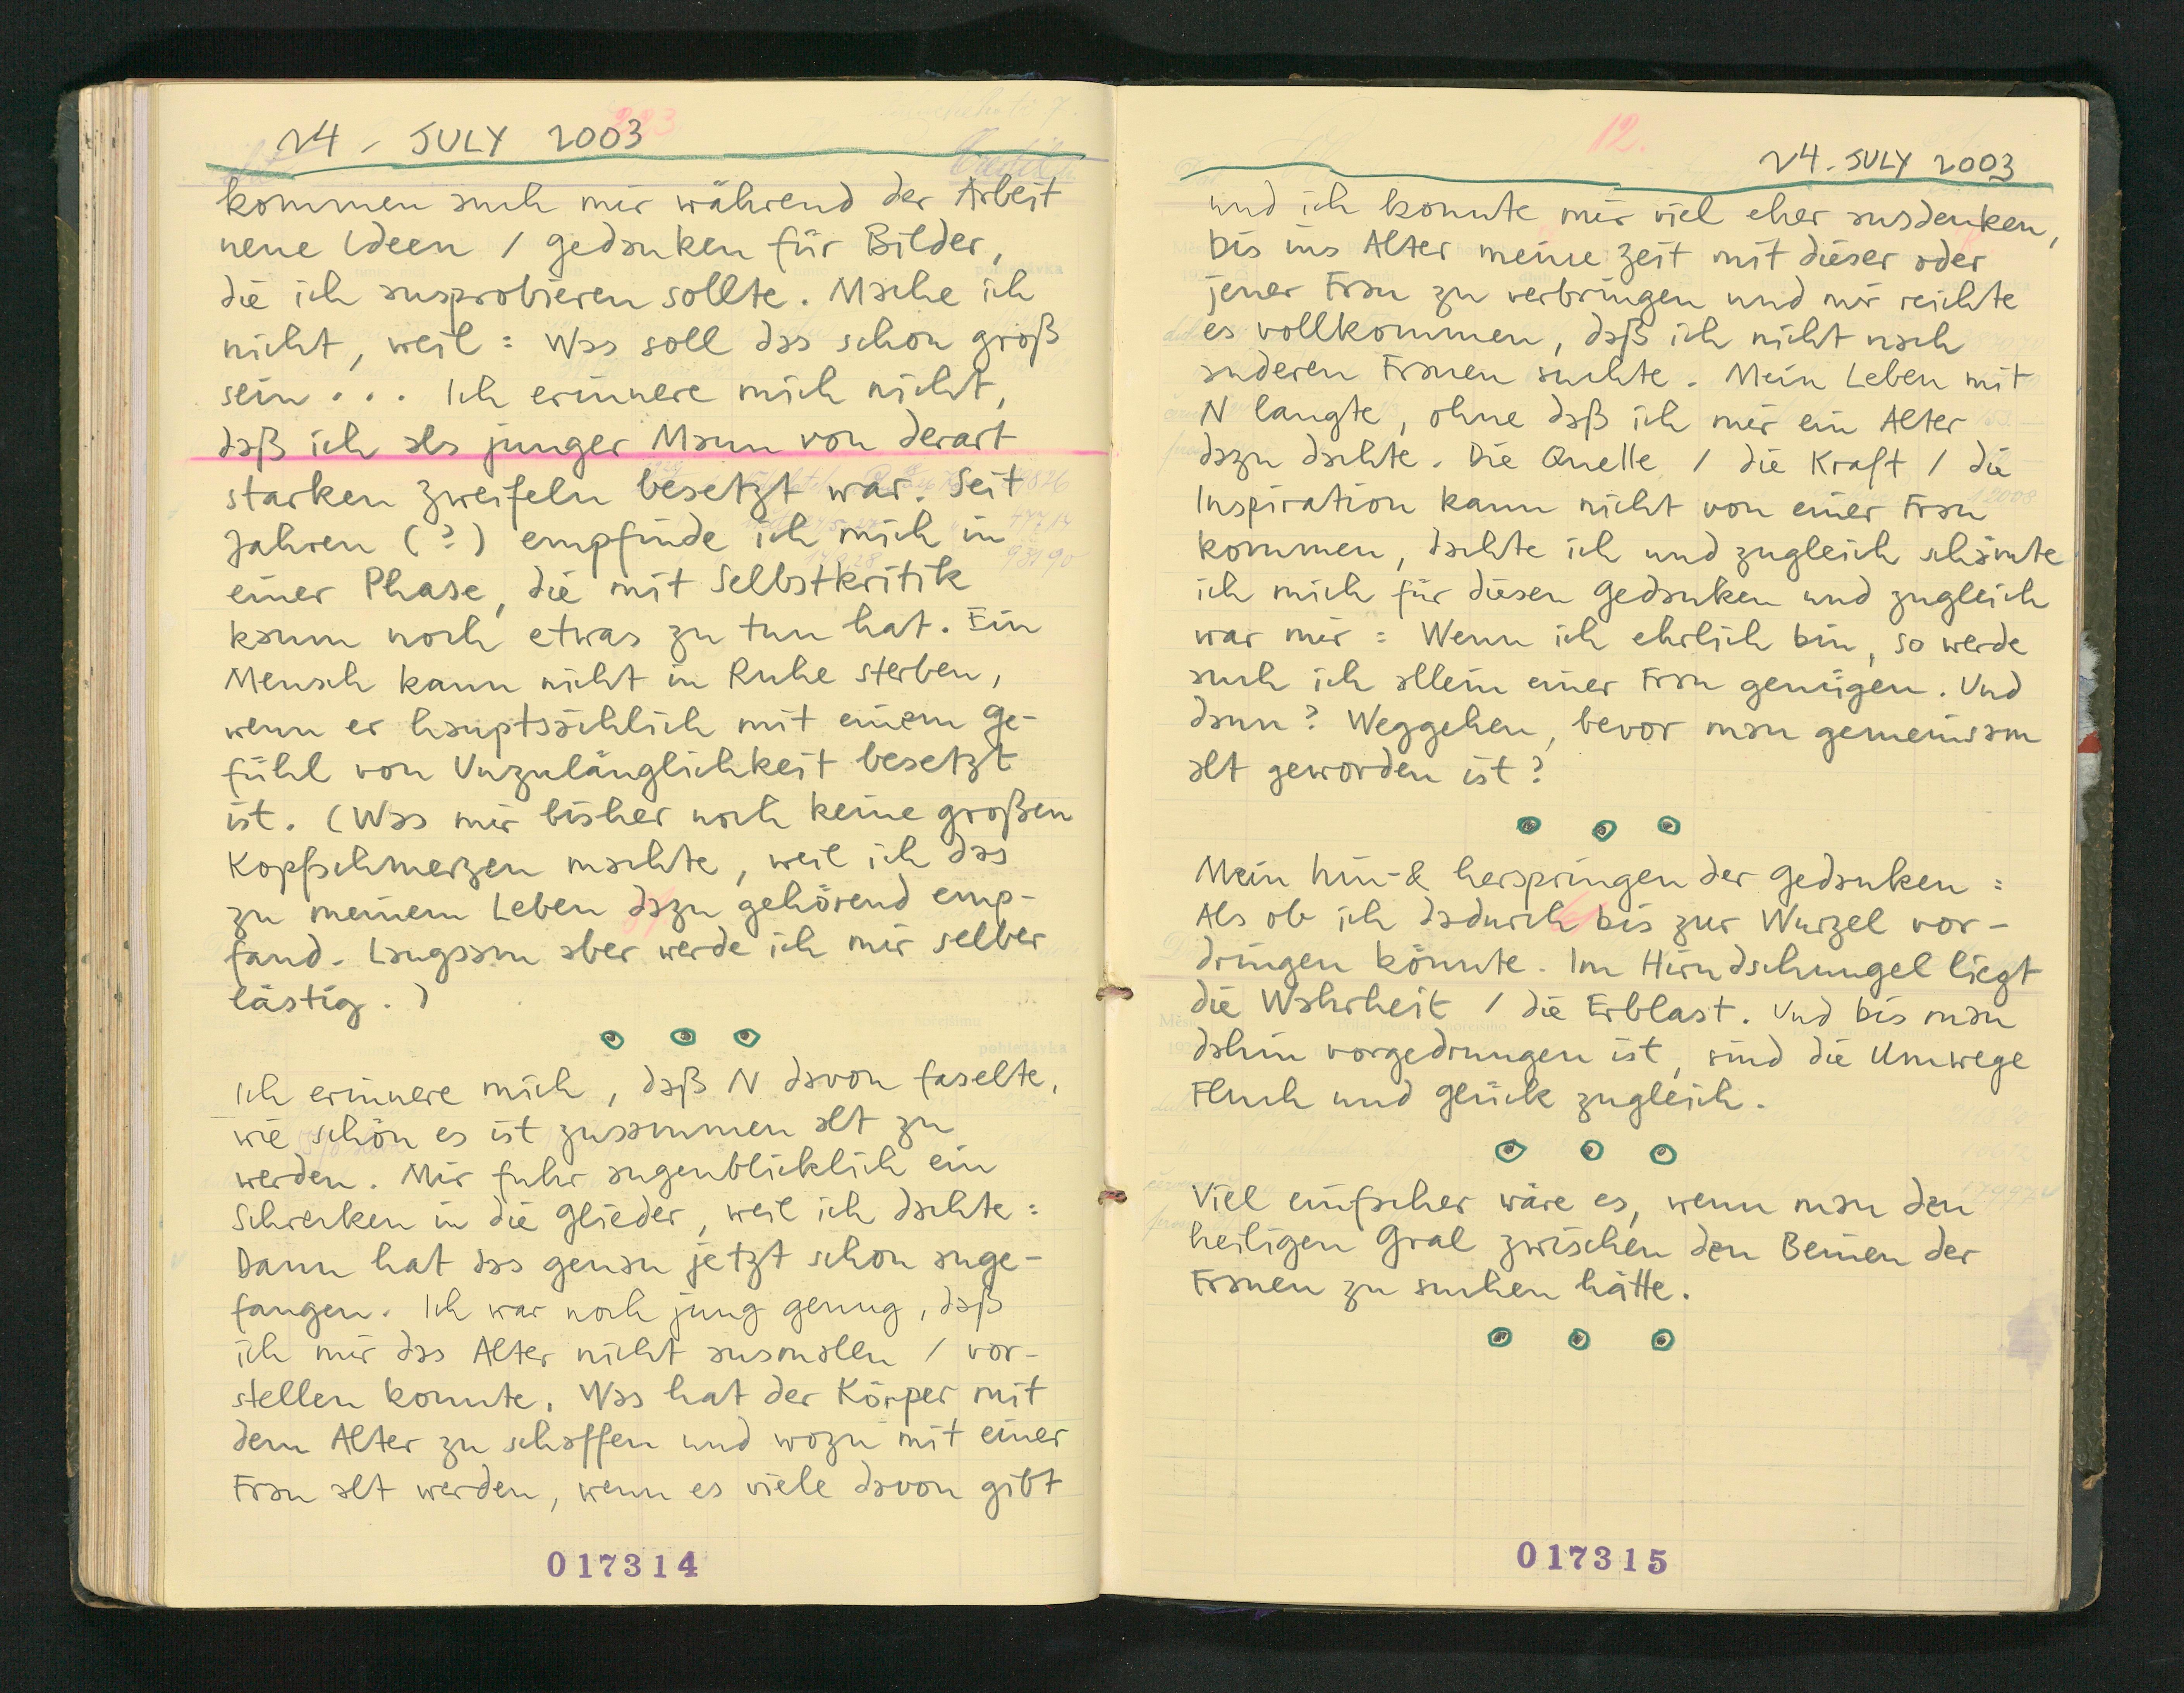 24 - JULY 2003
kommen auch mir während der Arbeit
neue Ideen / Gedanken für Bilder,
die ich ausprobieren sollte. Mache ich
nicht, weil: Was soll das schon groß
sein... Ich erinnere mich nicht,
daß ich als junger Mann von derart
starken Zweifeln besetzt war. Seit
Jahren (?) empfinde ich mich in
einer Phase, die mit Selbstkritik
kaum noch etwas zu tun hat. Ein
Mensch kann nicht in Ruhe sterben,
wenn er hauptsächlich mit einem Ge-
fühl von Unzulänglichkeit besetzt
ist. (Was mir bisher noch keine großen
Kopfschmerzen machte, weil ich das
zu meinem Leben dazu gehörend emp-
fand. Langsam aber werde ich mir selber
lästig.)
Ich erinnere mich, daß N davon faselte,
wie schön es ist zusammen alt zu
werden. Mir fuhr augenblicklich ein
Schrecken in die Glieder, weil ich dachte:
Dann hat das genau jetzt schon ange-
fangen. Ich war noch jung genug, daß
ich mir das Alter nicht ausmalen / vor-
stellen konnte. Was hat der Körper mit
dem Alter zu schaffen und wozu mit einer
Frau alt werden, wenn es viele davon gibt
017314
12.
24. JULY 2003
und ich konnte mir viel eher ausdenken,
bis ins Alter meine Zeit mit dieser oder
jener Frau zu verbringen und mir reichte
es vollkommen, daß ich nicht nach
anderen Frauen suchte. Mein Leben mit
N langte, ohne daß ich mir ein Alter
dazu dachte. Die Quelle / die Kraft / die
Inspiration kann nicht von einer Frau
kommen, dachte ich und zugleich schämte
ich mich für diesen Gedanken und zugleich
war mir: Wenn ich ehrlich bin, so werde
auch ich allein einer Frau genügen. Und
dann? Weggehen, bevor man gemeinsam
alt geworden ist?
Mein hin-& herspringen der Gedanken:
Als ob ich dadurch bis zur Wurzel vor-
dringen könnte. Im Hirndschungel liegt
die Wahrheit / die Erblast. Und bis man
dahin vorgedrungen ist, sind die Umwege
Fluch und Glück zugleich.
Viel einfacher wäre es, wenn man den
heiligen Gral zwischen den Beinen der
Frauen zu suchen hätte.
017315